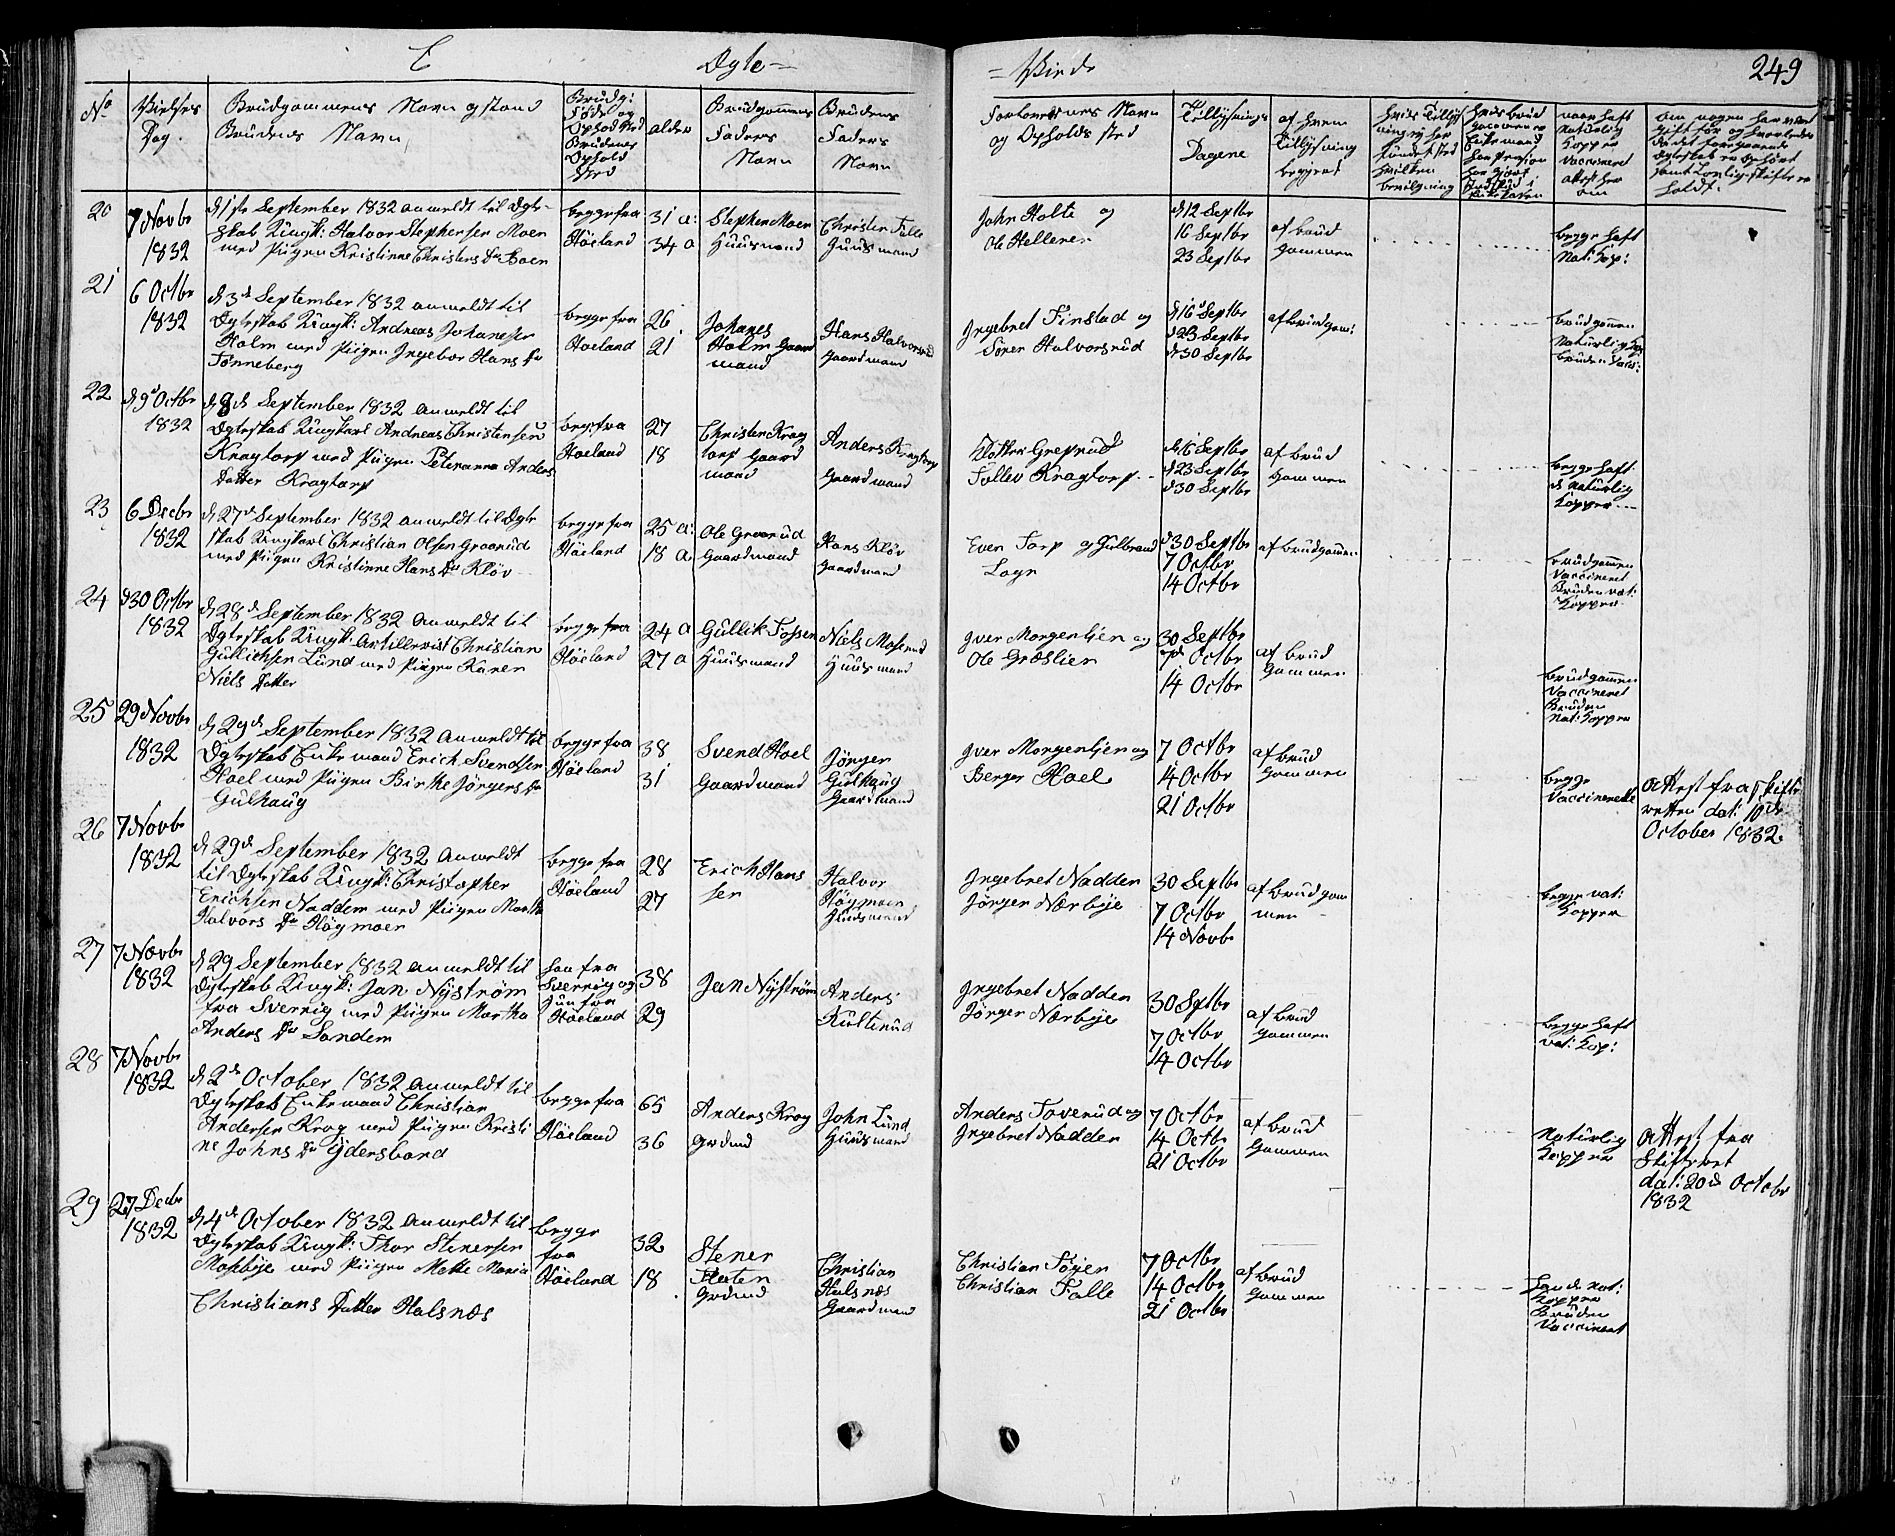 E Dgte- = Viede 249
No
Vielses
Dag.
Brudgommens Navn og stand
Brudens Navn
Brudg:
Føde og
Ophold sted
Brudenes
Ophold
sted
alder
Brudgommens
Faders
Navn
Brudens
Faders
Navn
Forloverenes Navn
og Opholds sted
Tillysnings
Dagene
af hvem
Tillysning
begjert
20
7 Novbr
1832
d 1ste September 1832 anmeldt til Dgte-
skab Ungk: Halvor Stephensen Moen
med Pigen Kristinne Christens Dtr Boen
begge fra
Høeland
31 a:
34 a
Stephen Moen
Huusmand
Christen Falle
Huusmand
John Holte og
Ole Hellener
d 12 Septbr
16 Septbr
23 Septbr
af brud
gommen
begge haft
nat: Kop:
21
6 Octbr
1832
d 3de September 1832 anmeldt til
Dgteskab Ungk: Andreas Johanesen
Holm med Pigen Ingebor Hans Dtr
Tønneberg
begge fra
Høeland
26
21
Johanes
Holm Gaard
mand
Hans Halvorsrud
Gaardmand
Ingebret Finstad og
Søren Halvorsrud
d 16 Septbr
d 23 Septbr
d 30 Septbr
af brudgom:
brudgommen
Naturlig Kop:
bruden Vacc:
22
d 9d Octbr
1832
d 8de September 1832 anmeldt til
Dgteskab Ungkarl Andreas Christensen
Kragtorp med Pigen Peteranna Anders
Datter Kragtorp
beg: fra
Høeland
27
18
Christen Krag
torp Gaard
mand
Anders Kragtorp
Gaardmand
Tollev Kragtorp
d 16 Septbr
d 23 Septbr
d 30 Septbr
af brud
gommen
begge haft
d naturlig
Kopper
23
6 Decbr
1832
d 27de September 1832 anmeldt til Dgte
skab Ungkarl Christian Olsen Graarud
med Pigen Kristinne Hans Dtr Kløv
begge fra
Høeland
25 a:
18 a.
Ole Graarud
Gaardmand
Hans Kløv
Gaardmand
Even Torp og Gulbrand
d 30 Septbr
7 Octbr
14 Octbr
af brudgommen
brudgommen
Vaccineret
Bruden nat:
Kopper
24
d 30 Octbr
1832
d 28de September 1832 anmeldt til
Dgteskab Ungk: Artillerist Christian
Gullichsen Lund med Pigen Karen
Niels Datter
begge fra
Høeland
24 a
27 a
Gullik Fossen
Huusmand
Niels Moserud
Huusmand
Iver Morgenlien og
Ole Græslien
30 Septbr
7de Octbr
14 Octbr
af brud
gommen
brudgommen
Vaccineret
Bruden
Nat: Kopper
25
29 Novbr
1832
d 29de September 1832 anmeldt til
Dgteskab Enkemand Erich Svendsen
Hoel med Pigen Birthe Jørgens Dtr
Gulhaug
begge fra
Høeland
38
31
Svend Hoel
Gaardmand
Jørgen
Gulhaug
Gaardmand
Iver Morgenlien og
Berger Hoel
7 Octbr
14 Octbr
21 Octbr
af brud
gommen
begge
Vaccinerede
Attest fra skifte
retten dat: 10de
October 1832
26
7 Novbr
1832
d 29de September 1832 anmeldt
til Dgteskab Ungk: Christopher
Erichsen Nadden med Pigen Marthe
Halvors Dtr Høgmoen
begge fra
Høeland
28
27
Erich Han
sen
Halvor
Høgmoen
Huusmand
Ingebret Nadden
Jørgen Nærbye
30 Septbr
7 Octbr
14 Novbr
af brudgom
men
begge nat:
Kopper
27
7 Novbr
1832
d 29 September 1832 anmeldt til
Dgteskab Ungk: Jan Nyström
fra Sverrig med Pigen Martha
Anders Dtr Sanden
han fra
Sverrig og
hun fra
Høeland
38
29
Jan Nyström
Anders
Kulterud
Ingebret Nadden
Jørgen Nærbye
30 Sptbr
7 Octbr
14 Octbr
af brud
gommen
begge haft
nat: Kop:
28
7 Novbr
1832
d 2de October 1832 anmeldt til
Dgteskab Enkemand Christian
Andersen Krog med Pigen Kristi
ne Johns Dtr Ydersbond
begge fra
Høeland
65
36
Anders Krog
Grdmd
John Lund
Huusmand
Anders Toverud og
Ingebret Nadden
7 Octbr
14 Octbr
21 Octbr
af brud
gommen
Naturlig
Kopper
Attest fra
Skiftret
dat: 20de Octobr
1832
29
27 Decbr
1832
d 4de October 1832 anmeldt til
Dgteskab Ungk: Thor Stenersen
Mosebye med Pigen Mette Maria
Christians Datter Halsnæs
begge
fra
Høeland
32
18
Stener
Grdmd
Christian
Halsnæs
Gaardmand
Christian Tøien
Christian Falle
7 Octbr
14 Octbr
21 Octbr
af brud
gommen
han de nat:
Kopper
Bruden
Vaccineret